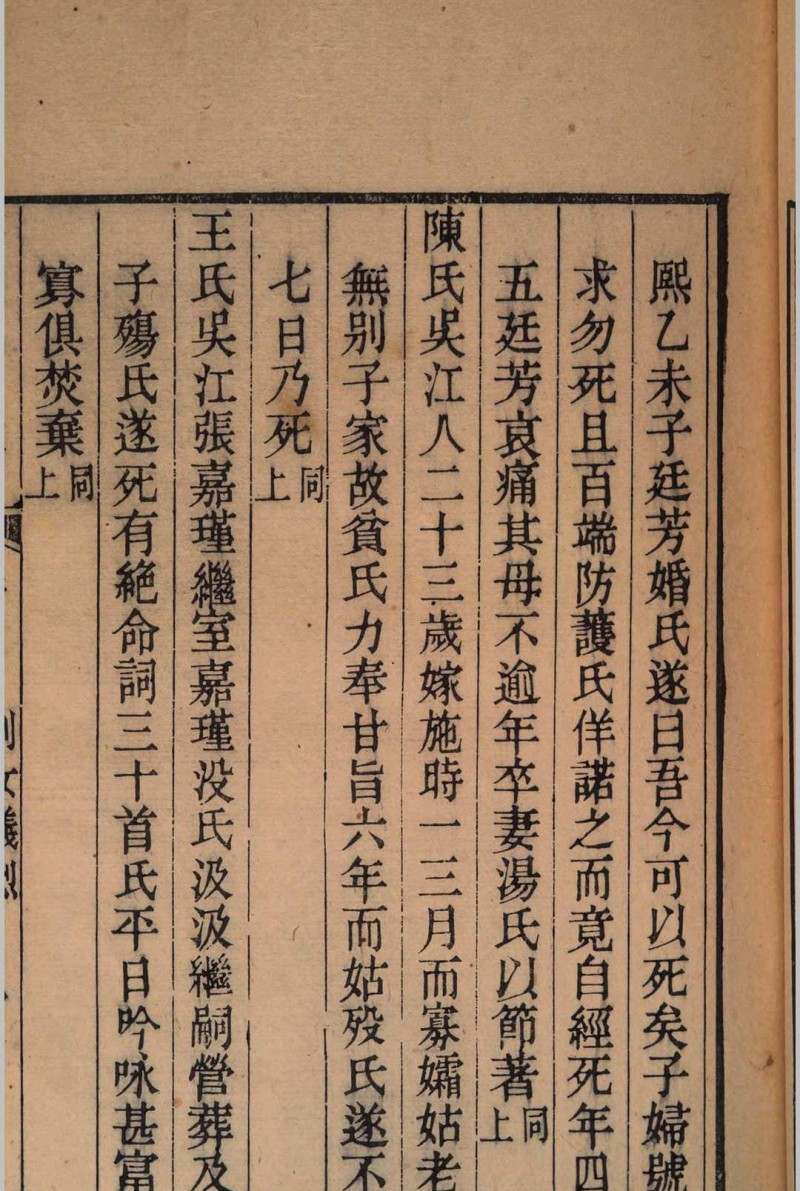 熙乙未子廷芳婚氏遂曰吾今可以死矣子婦號
求勿死且百端防護氏佯諾之而竟自經死年四
五廷芳哀痛其母不逾年卒妻湯氏以節著同上
陳氏吳江人二十三歲嫁施時一三月而寡孀姑老
無别子家故貧氏力奉甘旨六年而姑歿氏遂不
七日乃死同上
王氏吳江張嘉瑾繼室嘉瑾没氏汲汲繼嗣營葬及
子殤氏遂死有絶命詞三十首氏平日吟咏甚富
寡俱焚棄同上
列女義烈